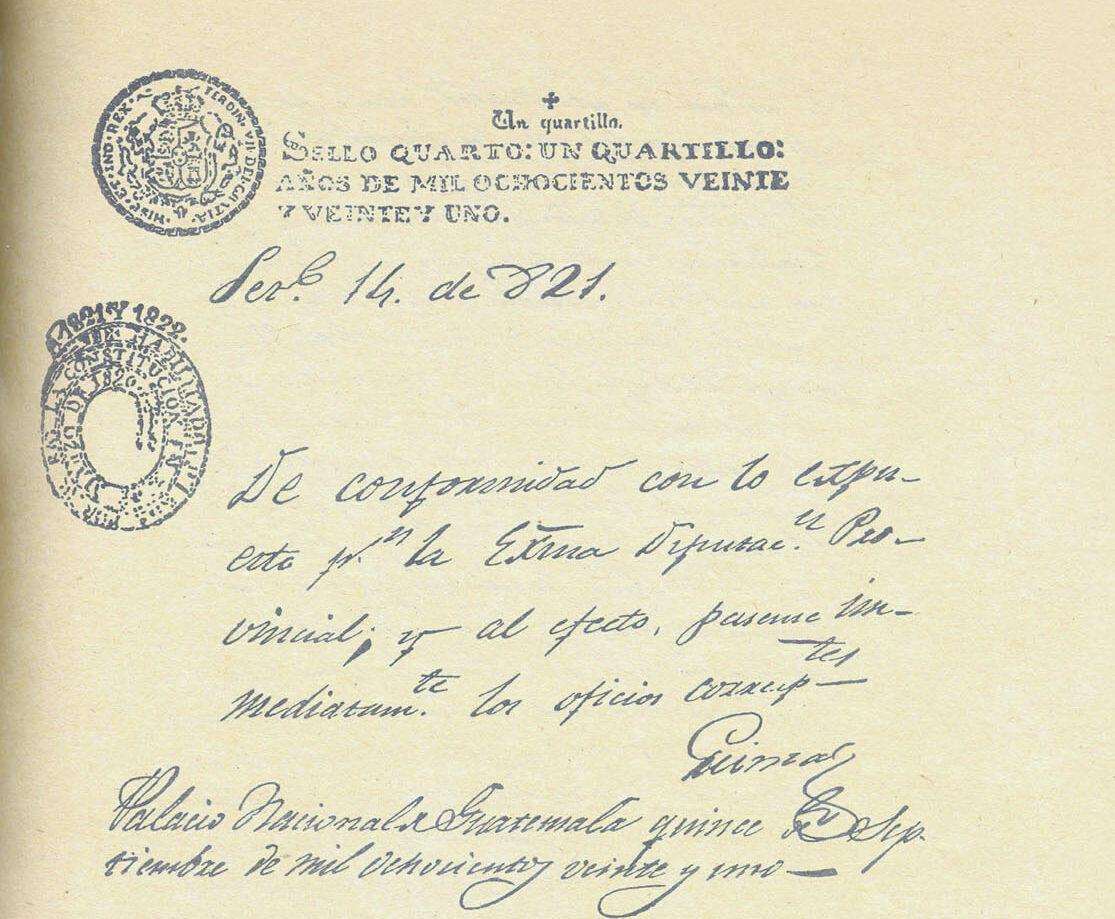 FERDIN·VII·D·G·
HISP·ET·IND·REX·
Un quartillo.
SELLO QUARTO: UN QUARTILLO:
AÑOS DE MIL OCHOCIENTOS VEINTE
Y VEINTE Y UNO.
14. de 821.
1821 Y 1822.
HABILITADO
LA CONSTITUCION EN
DE 1820.
De conformidad con lo expu-
esto pr.n la Exma Diputac.n Pro-
vincial; y al efecto, pasense in-
mediatam.te los oficios corresp.tes
Palacio Nacional de Guatemala quince de Sep-
tiembre de mil ochocientos veinte y uno—